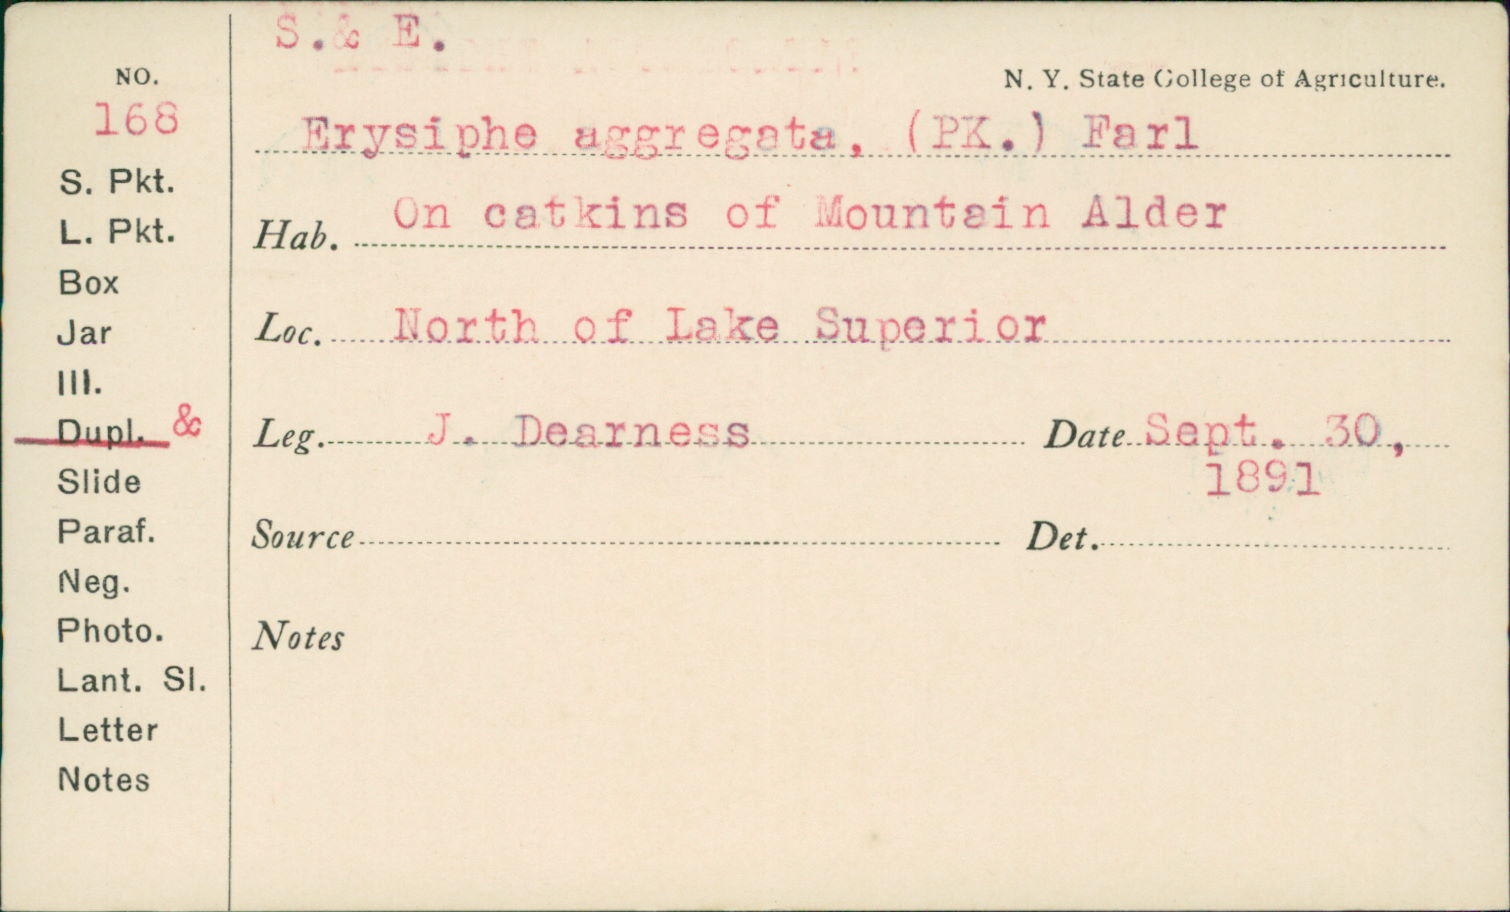 S.& E.
NO.
N. Y. State College of Agriculture.
168
Erysiphe aggregata, (PK.) Farl
S. Pkt.
On catkins of Mountain Alder
L. Pkt.
Hab.
Box
Jar
Loc. North of Lake Superior
Ill.
Dupl. &
Leg. J. Dearness Date Sept. 30,
1891
Slide
Paraf.
Source Det.
Neg.
Photo.
Notes
Lant. Sl.
Letter
Notes